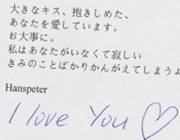 大きなキス、抱きしめた、
あなたを愛しています。
お大事に。
私はあなたがいなくて寂しい
きみのことばかりかんがえてしまうよ
Hanspeter
I love You ♡